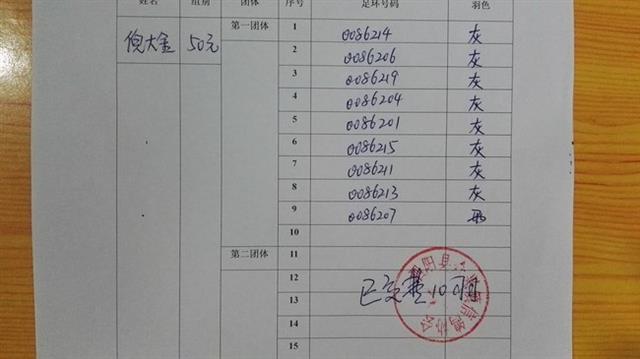 姓名 组别 团体 序号 足环号码 羽色
倪大金 50元 第一团体 1 0086214 灰
2 0086206 灰
3 0086219 灰
4 0086204 灰
5 0086201 灰
6 0086215 灰
7 0086211 灰
8 0086213 灰
9 0086207
10
第二团体 11
12
已交
13
14
15